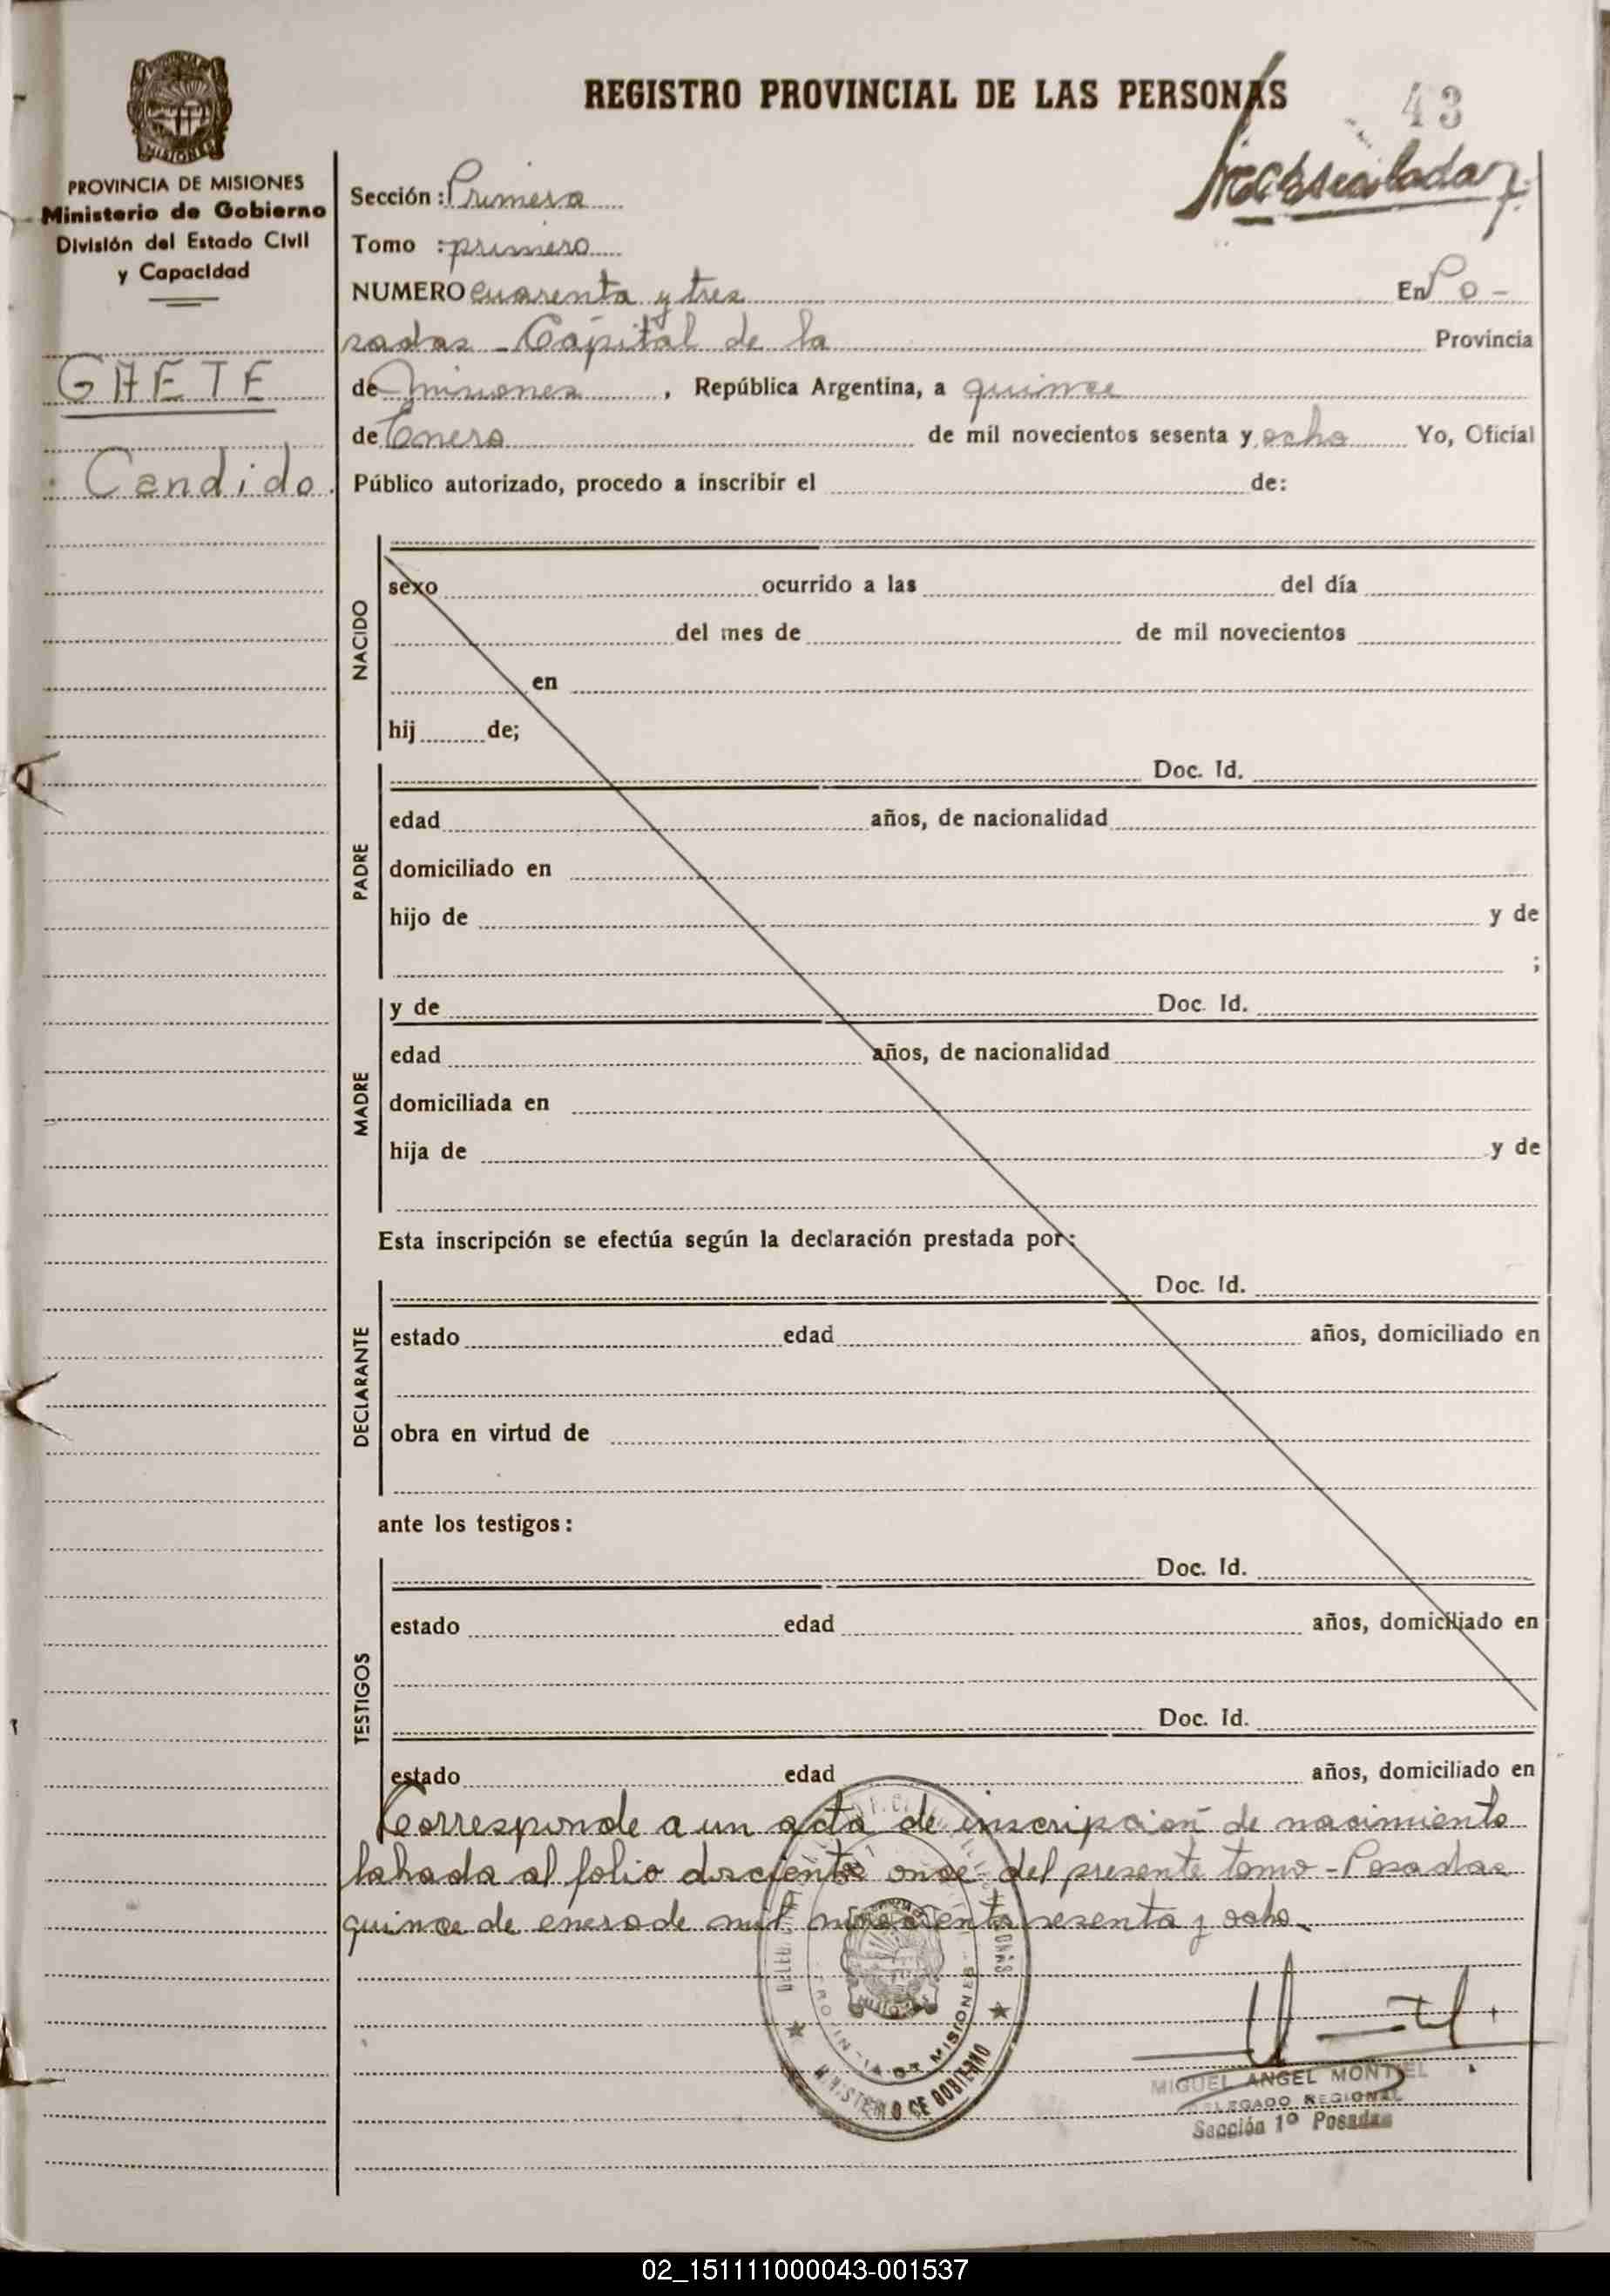 REGISTRO PROVINCIAL DE LAS PERSONAS
43
MISIONES
PROVINCIA DE MISIONES
Ministerio de Gobierno
División del Estado Civil
y Capacidad
GAETE
Candido.
Sección: Primera
Tomo : primero
NUMERO cuarenta y tres En Po-
sadas - Capital de la Provincia
de Misiones, República Argentina, a quince
de Enero de mil novecientos sesenta y ocho Yo, Oficial
Público autorizado, procedo a inscribir el de:
NACIDO
sexo ocurrido a las del día
del mes de de mil novecientos
en
hij de;
PADRE
Doc. Id.
edad años, de nacionalidad
domiciliado en
hijo de y de
;
MADRE
y de Doc. Id.
edad años, de nacionalidad
domiciliada en
hija de y de
Esta inscripción se efectúa según la declaración prestada por:
DECLARANTE
Doc. Id.
estado edad años, domiciliado en
obra en virtud de
ante los testigos:
TESTIGOS
Doc. Id.
estado edad años, domiciliado en
Doc. Id.
estado edad años, domiciliado en
Corresponde a un acta de inscripción de nacimiento
labrada al folio doscientos once del presente tomo - Posadas
quince de enero de mil novecientos sesenta y ocho
MISIONES
MINISTERIO DE GOBIERNO
MIGUEL ANGEL MONTIEL
DELEGADO REGIONAL
Sección 1º Posadas
02_151111000043-001537